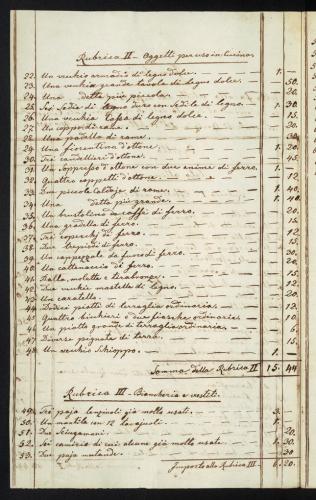 Rubrica II – Oggetti per uso in Cucina.
22. Un vecchio armadio di legno dolce. 1. —
23. Una vecchia grande tavola di legno dolce. — 50.
24. Una detta più piccola. — 20.
25. Sei Sedie di legno duro con Sedile di legno. 1. 30
26. Una vecchia Cassa di legno dolce. — 15.
27. Un coppo di rame.
28. Una padella di rame. — 30
29. Una fiorentina d'ottone. 1. 20
30. Tre candellieri d'ottone. — 45.
31. Un soppresso d'ottone con due anime di ferro. 1. —
32. Quattro coppetti d'ottone. — 12
33. Due piccole Caldaje di rame. 1. 40
34. Una detta più grande. 1. 40.
35. Un brustolino da caffè di ferro. — 15.
36. Una gradella di ferro. — 12
37. Tre coperchj di ferro. — 15.
38. Due trepiedi di ferro.
39. Un cappezzale da fuoco di ferro. — 30.
40. Un cattenaccio di ferro.
41. Palla, molette e tirabongie.
42. Due vecchie mastelle di legno.
43. Un caratello. — 20.
44. Dodeci piatti di terraglia ordinaria.
45. Quattro bichieri e due fiasche ordinarie.
46. Un piatto grande di terraglia ordinaria. — 6.
47. Diverse pignate di terra. — 15.
48. Un vecchio Schioppo. 1. —
Somma della Rubrica II 15. 44
Rubrica III – Biancheria e vestiti.
49. Tre paja lenzuoli già molto usati. 3. —
50. Una mantila con 12 tovajuoli. 1. —
51. Due Sciugamani. — 20.
52. Sei camicie di cui alcune già molto usate. 1. 30
53. Due paja mutande. — 30
Importo alla Rubrica III 6. 20.